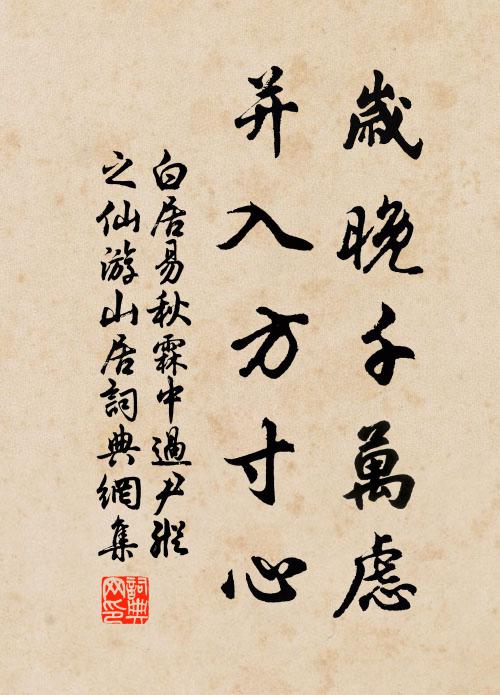 歲晚千萬慮
并入方寸心
白居易秋霖中過尹縱
之仙游山居詞典網集
詞典
网印